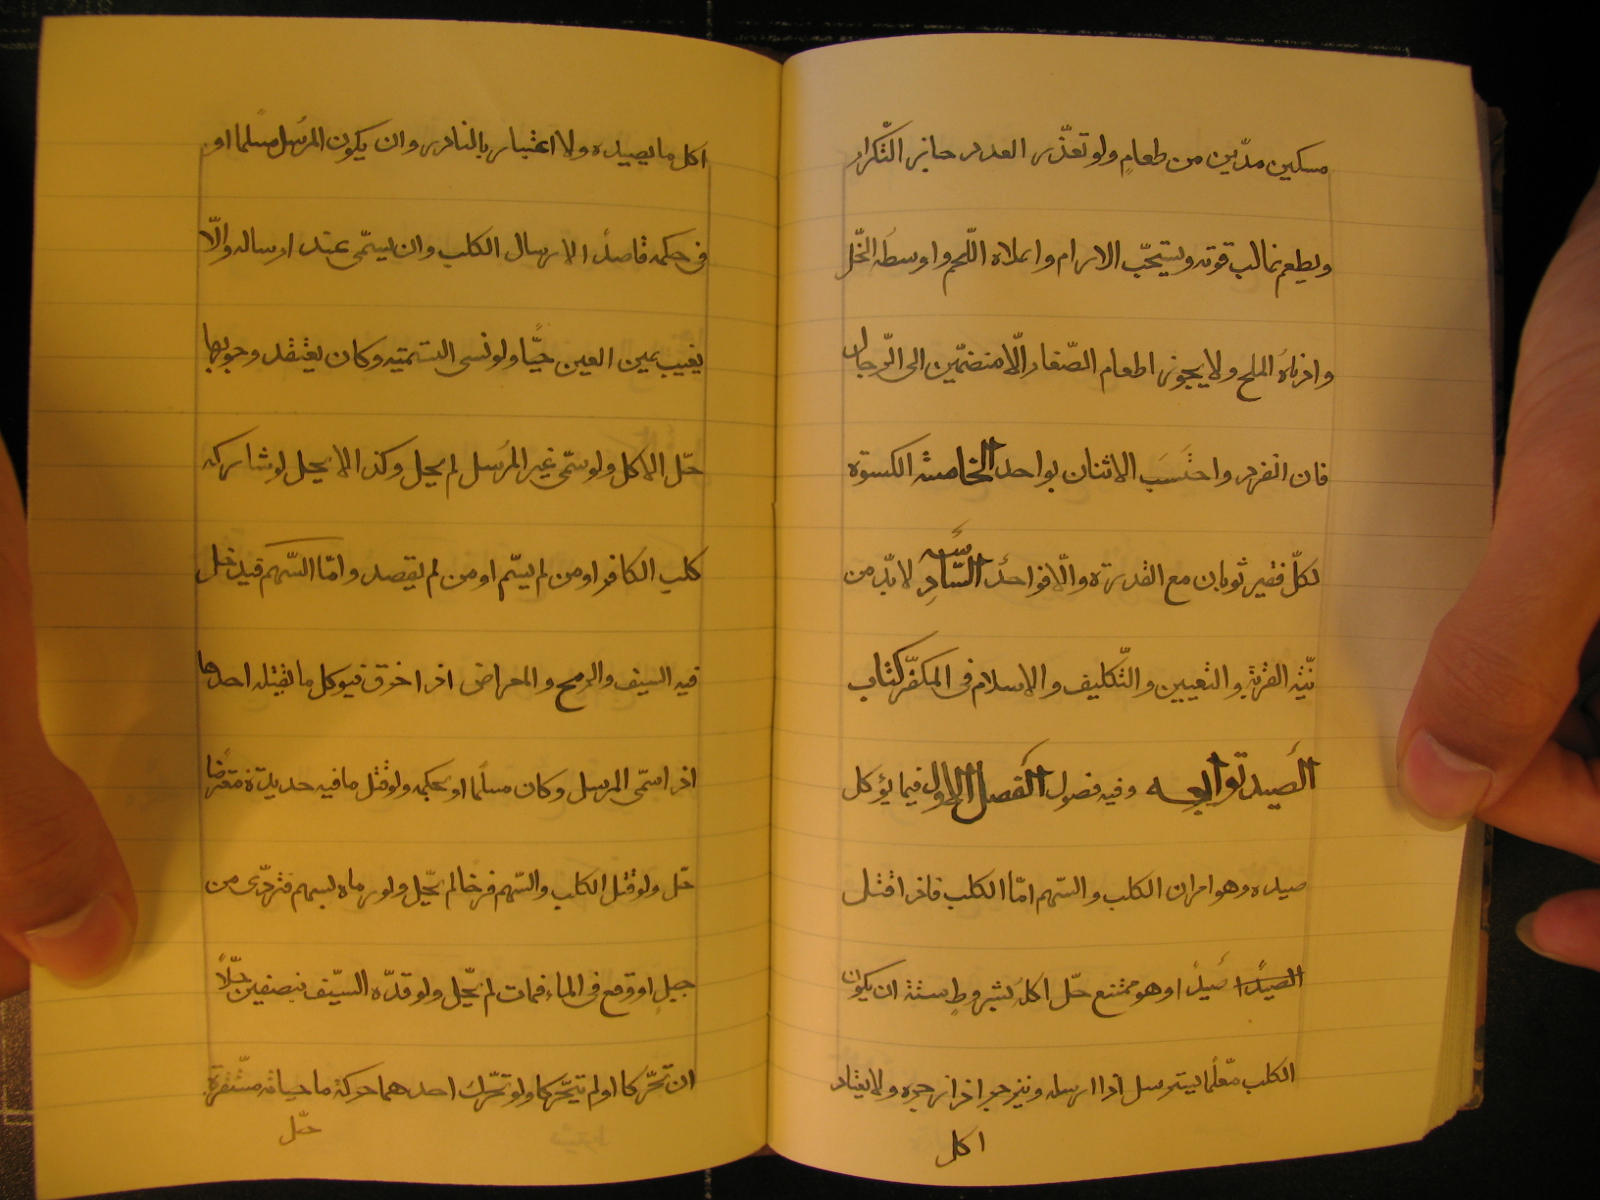 مسكين مدّين من طعامٍ ولو تعذّر العدد جاز التّكرار
ويطعم غالب قوته ويستحّب الادام واعلاه اللّحم واوسطه الخّل
وادناهُ الملح ولا يجوز اطعام الصّغار الّا منضمّين الى الرّجال
فان انفرد واحتَسَب الاثنان بواحد الخامسة الكسوة
لكلّ فقير ثوبان مع القدرة والّا فواحدٌ السّادِسَة لا بدّ من
نيّة القربة والتعيين والتّكليف والاسلام فى المكفّر كتاب
الصَيد وتوابعه وفيه فصول الفصل الاول فيما يؤكل
صيده وهو امران الكلب والسّهم امّا الكلب فاذا قتل
صيدًا وهو ممتنع حّل اكلُ بشروطٍ ستة ان يكون
الكلب معّلمًا يسترسل اذا ارسله وينزجر اذا زجره ولا يعتاد
اكل
اكل ما يصيده ولا اعتبار بالنادر وان يكون المرسُل مسًلما او
فى حكمه قاصدًا لارسال الكلب وان يسمّى عند ارساله والّا
يغيب بمين العين حيًّا ولو نسى التسمية وكان يعتقد وجوبها
حّل الاكل ولو سمّى غير المرُسل لم يحل وكذا لا يحل لو شاركه
كلب الكافر او من لم يسّم او من لم يقصد وامّا السّهم فيدخل
فيه السيف والرمح والمعراض اذا خرق فيوكل ما يقتله احدها
اذا سمّى المرسل وكان مسلًما او بحكمه ولو قتل ما فيه حديدة معترضًا
حّل ولو قتل الكلب والسّهم فرخا لم يحّل ولو رماه بسهم فتردّى من
جبلٍ او وقع فى الماء فمات لم يحّل ولو قدّه السيّف نبصفين حّلا
ان تحّركا او لم يتحّركا ولو تحّرك احدهما حركة ما حياته مستّقرة
حّل